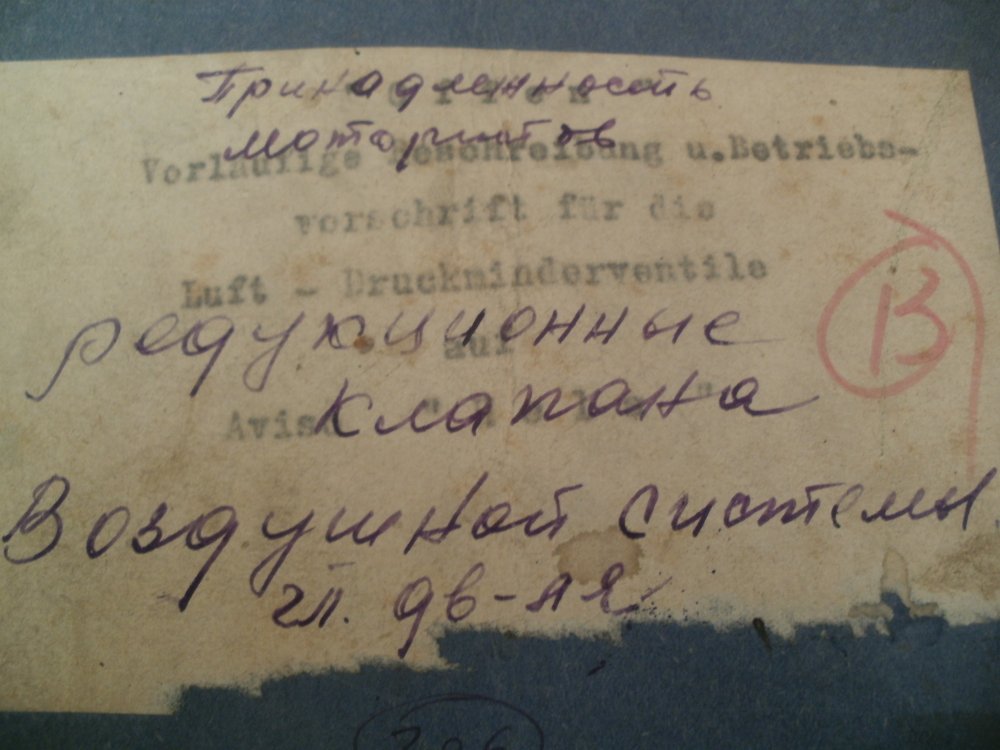 Принадлежность
мотористов
Vorläufige Beschreibung u.Betriebs-
vorschrift für die
Luft - Druckminderventile
редукционные
auf
клапана
Aviso
Воздушной системы
гл. дв-ля
В